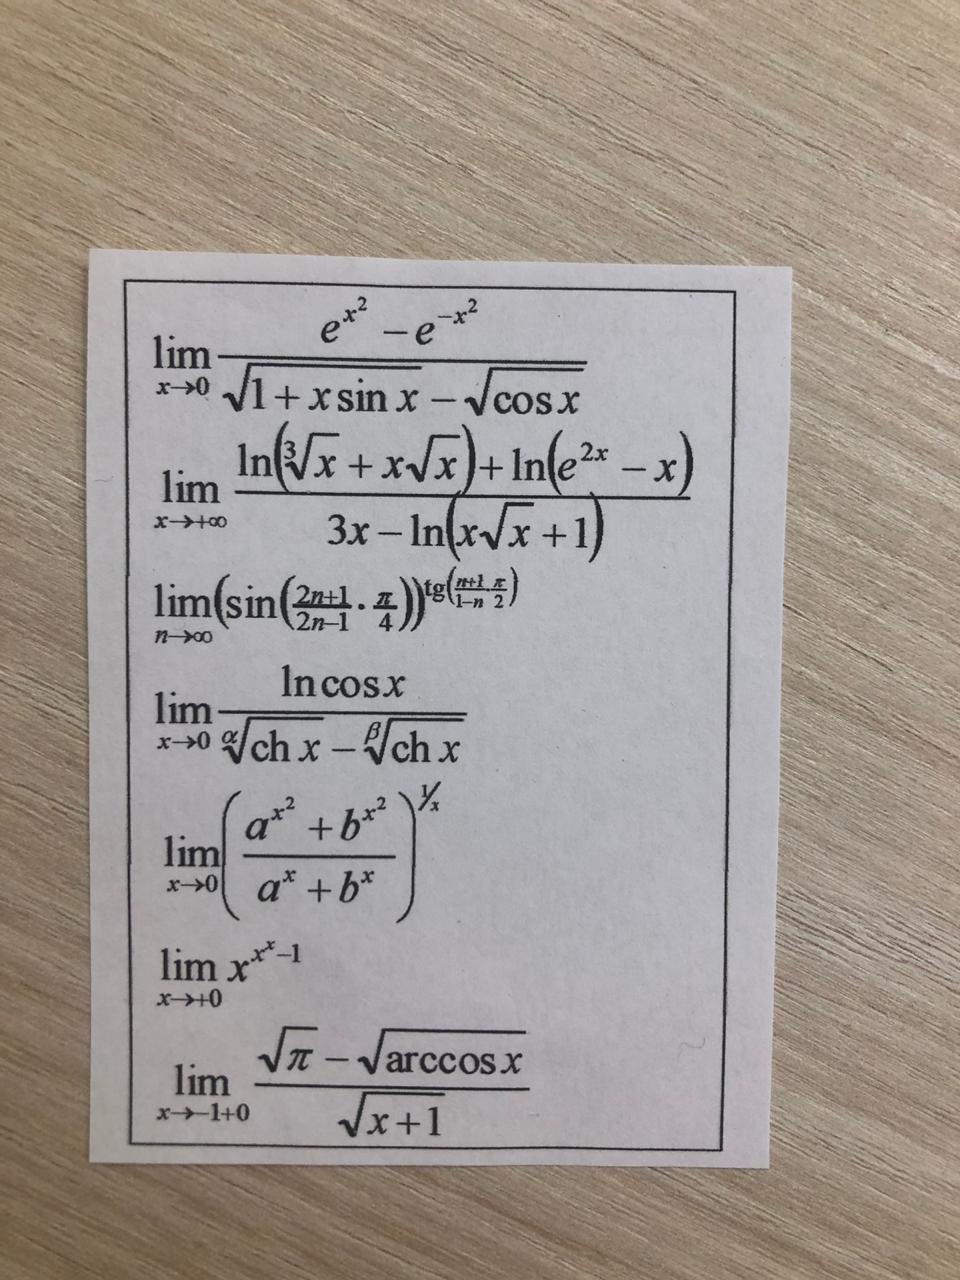 $\lim_{x \to 0} \frac{e^{x^2} - e^{-x^2}}{\sqrt{1 + x \sin x} - \sqrt{\cos x}}$
$\lim_{x \to +\infty} \frac{\ln(\sqrt[3]{x} + x\sqrt{x}) + \ln(e^{2x} - x)}{3x - \ln(x\sqrt{x} + 1)}$
$\lim_{n \to \infty} (\sin(\frac{2n+1}{2n-1} \cdot \frac{\pi}{4}))^{\text{tg}(\frac{n+1}{1-n} \cdot \frac{\pi}{2})}$
$\lim_{x \to 0} \frac{\ln \cos x}{\sqrt[\alpha]{\text{ch } x} - \sqrt[\beta]{\text{ch } x}}$
$\lim_{x \to 0} \left(\frac{a^{x^2} + b^{x^2}}{a^x + b^x}\right)^{1/x}$
$\lim_{x \to +0} x^{x^x - 1}$
$\lim_{x \to -1+0} \frac{\sqrt{\pi} - \sqrt{\arccos x}}{\sqrt{x+1}}$